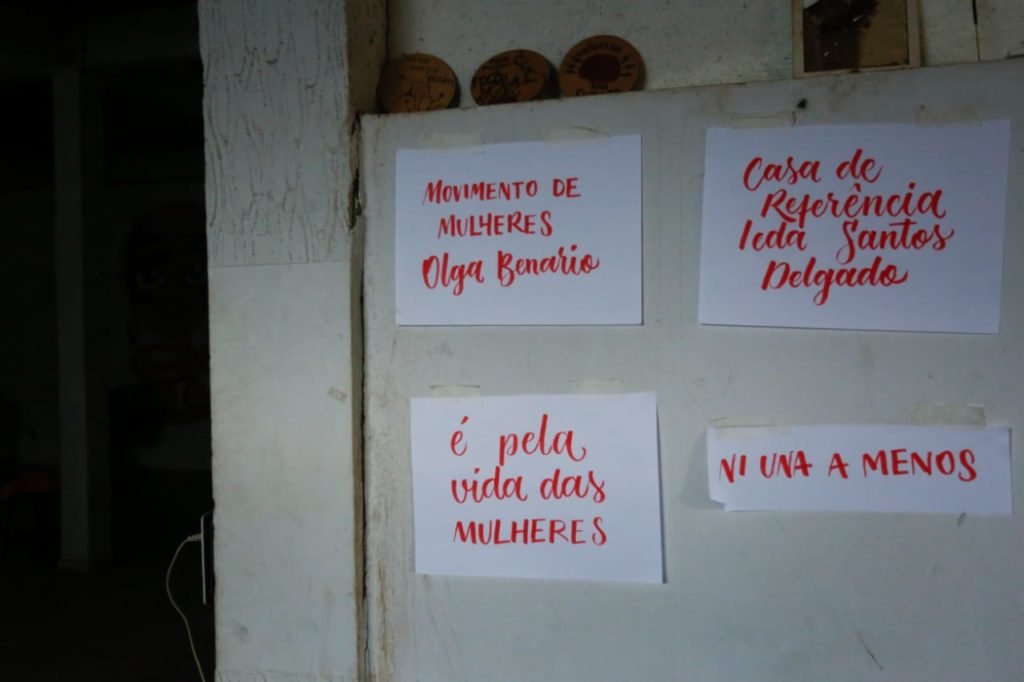 MOVIMENTO DE
MULHERES
Olga Benario
Casa de
Referência
Ieda Santos
Delgado
é pela
vida das
MULHERES
NI UNA A MENOS